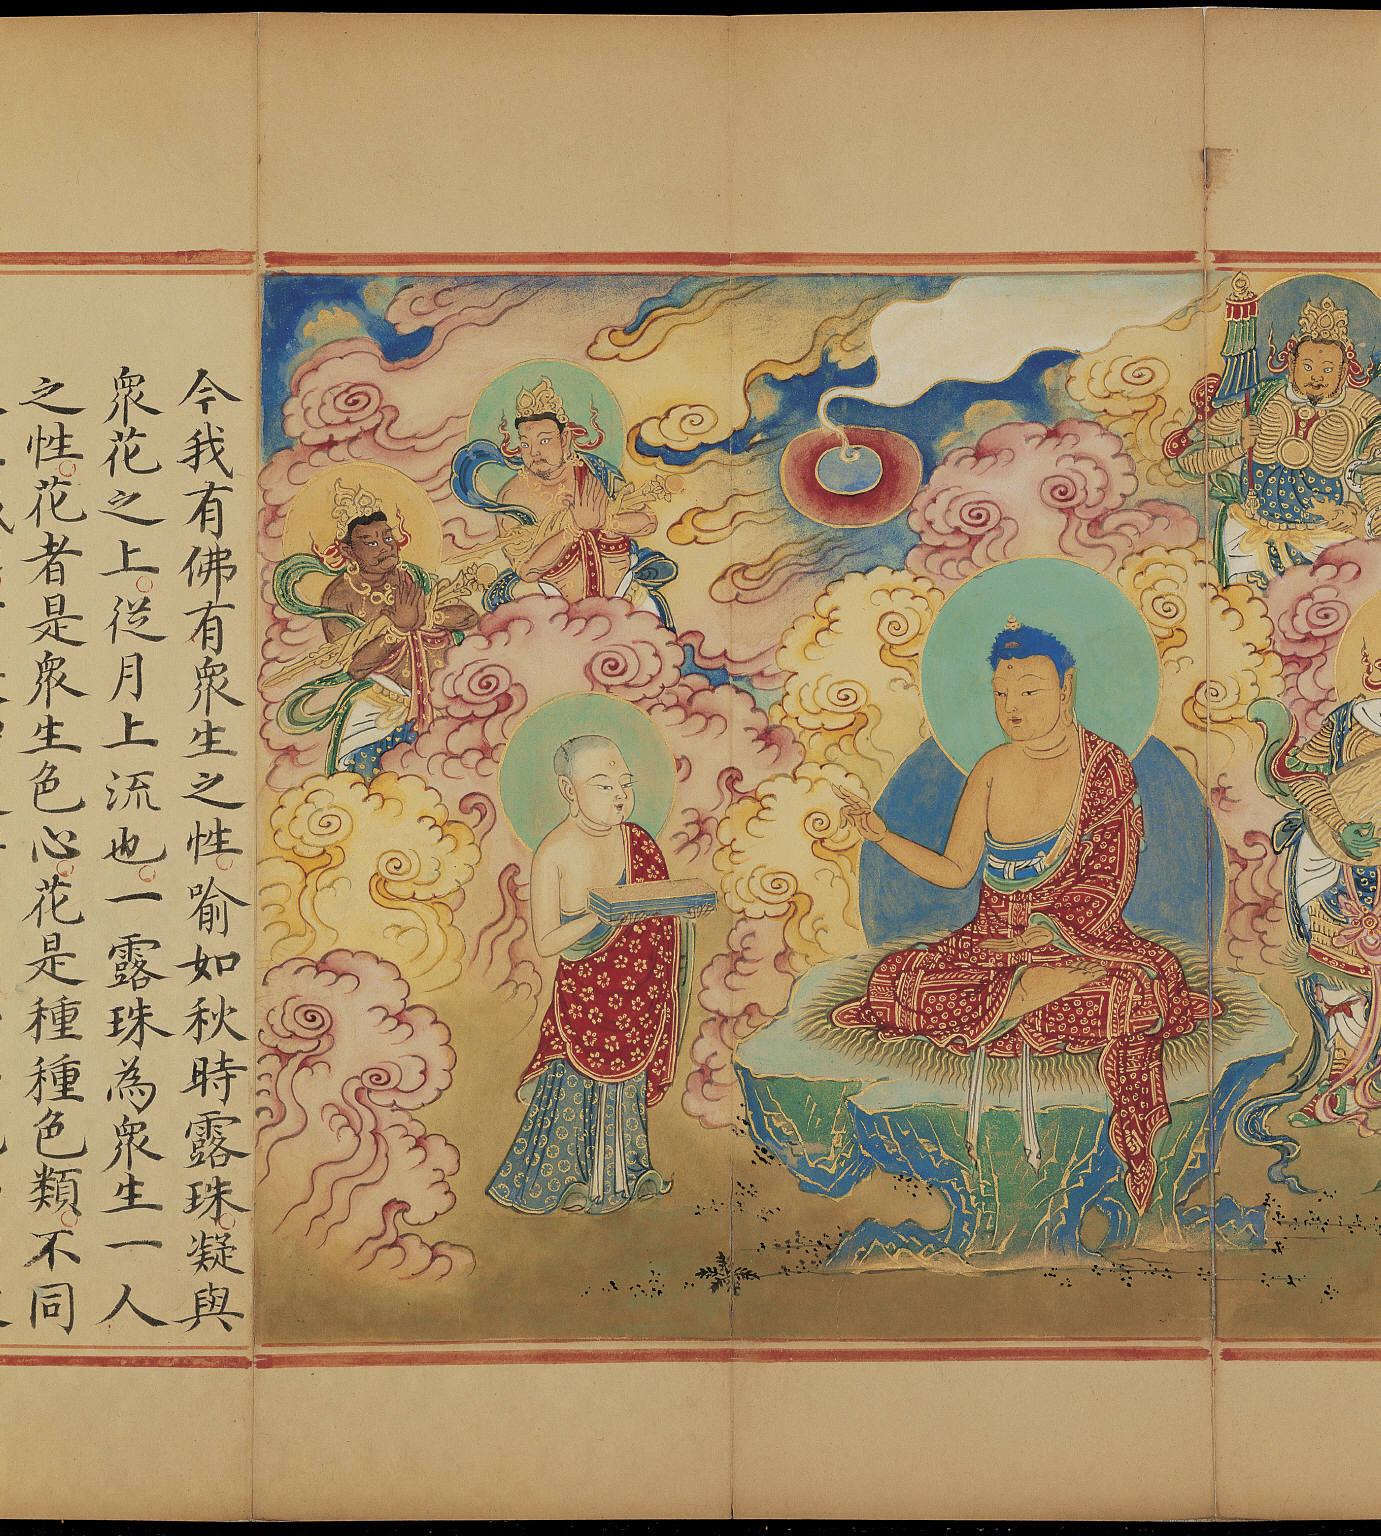 今我有佛有衆生之性喻如秋時露珠凝與
衆花之上從月上流也一露珠為衆生一人
之性花者是衆生色心花是種種色類不同